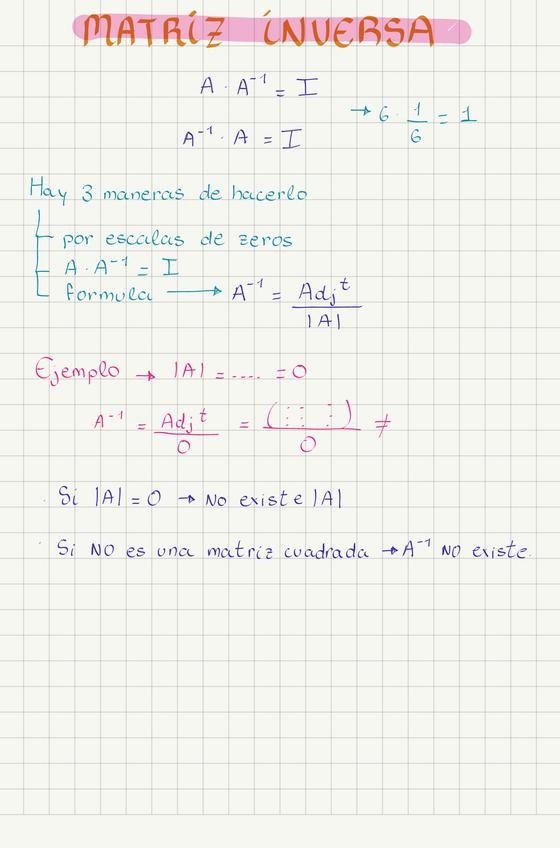 MATRIZ INVERSA
A · A⁻¹ = I
→ 6 · 1/6 = 1
A⁻¹ · A = I
Hay 3 maneras de hacerlo
por escalas de zeros
A · A⁻¹ = I
formula → A⁻¹ = Adjᵗ / |A|
Ejemplo → |A| = .... = 0
A⁻¹ = Adjᵗ / 0 = (: : :) / 0 ≠
· Si |A| = 0 → No existe |A|
· Si NO es una matriz cuadrada → A⁻¹ NO existe.